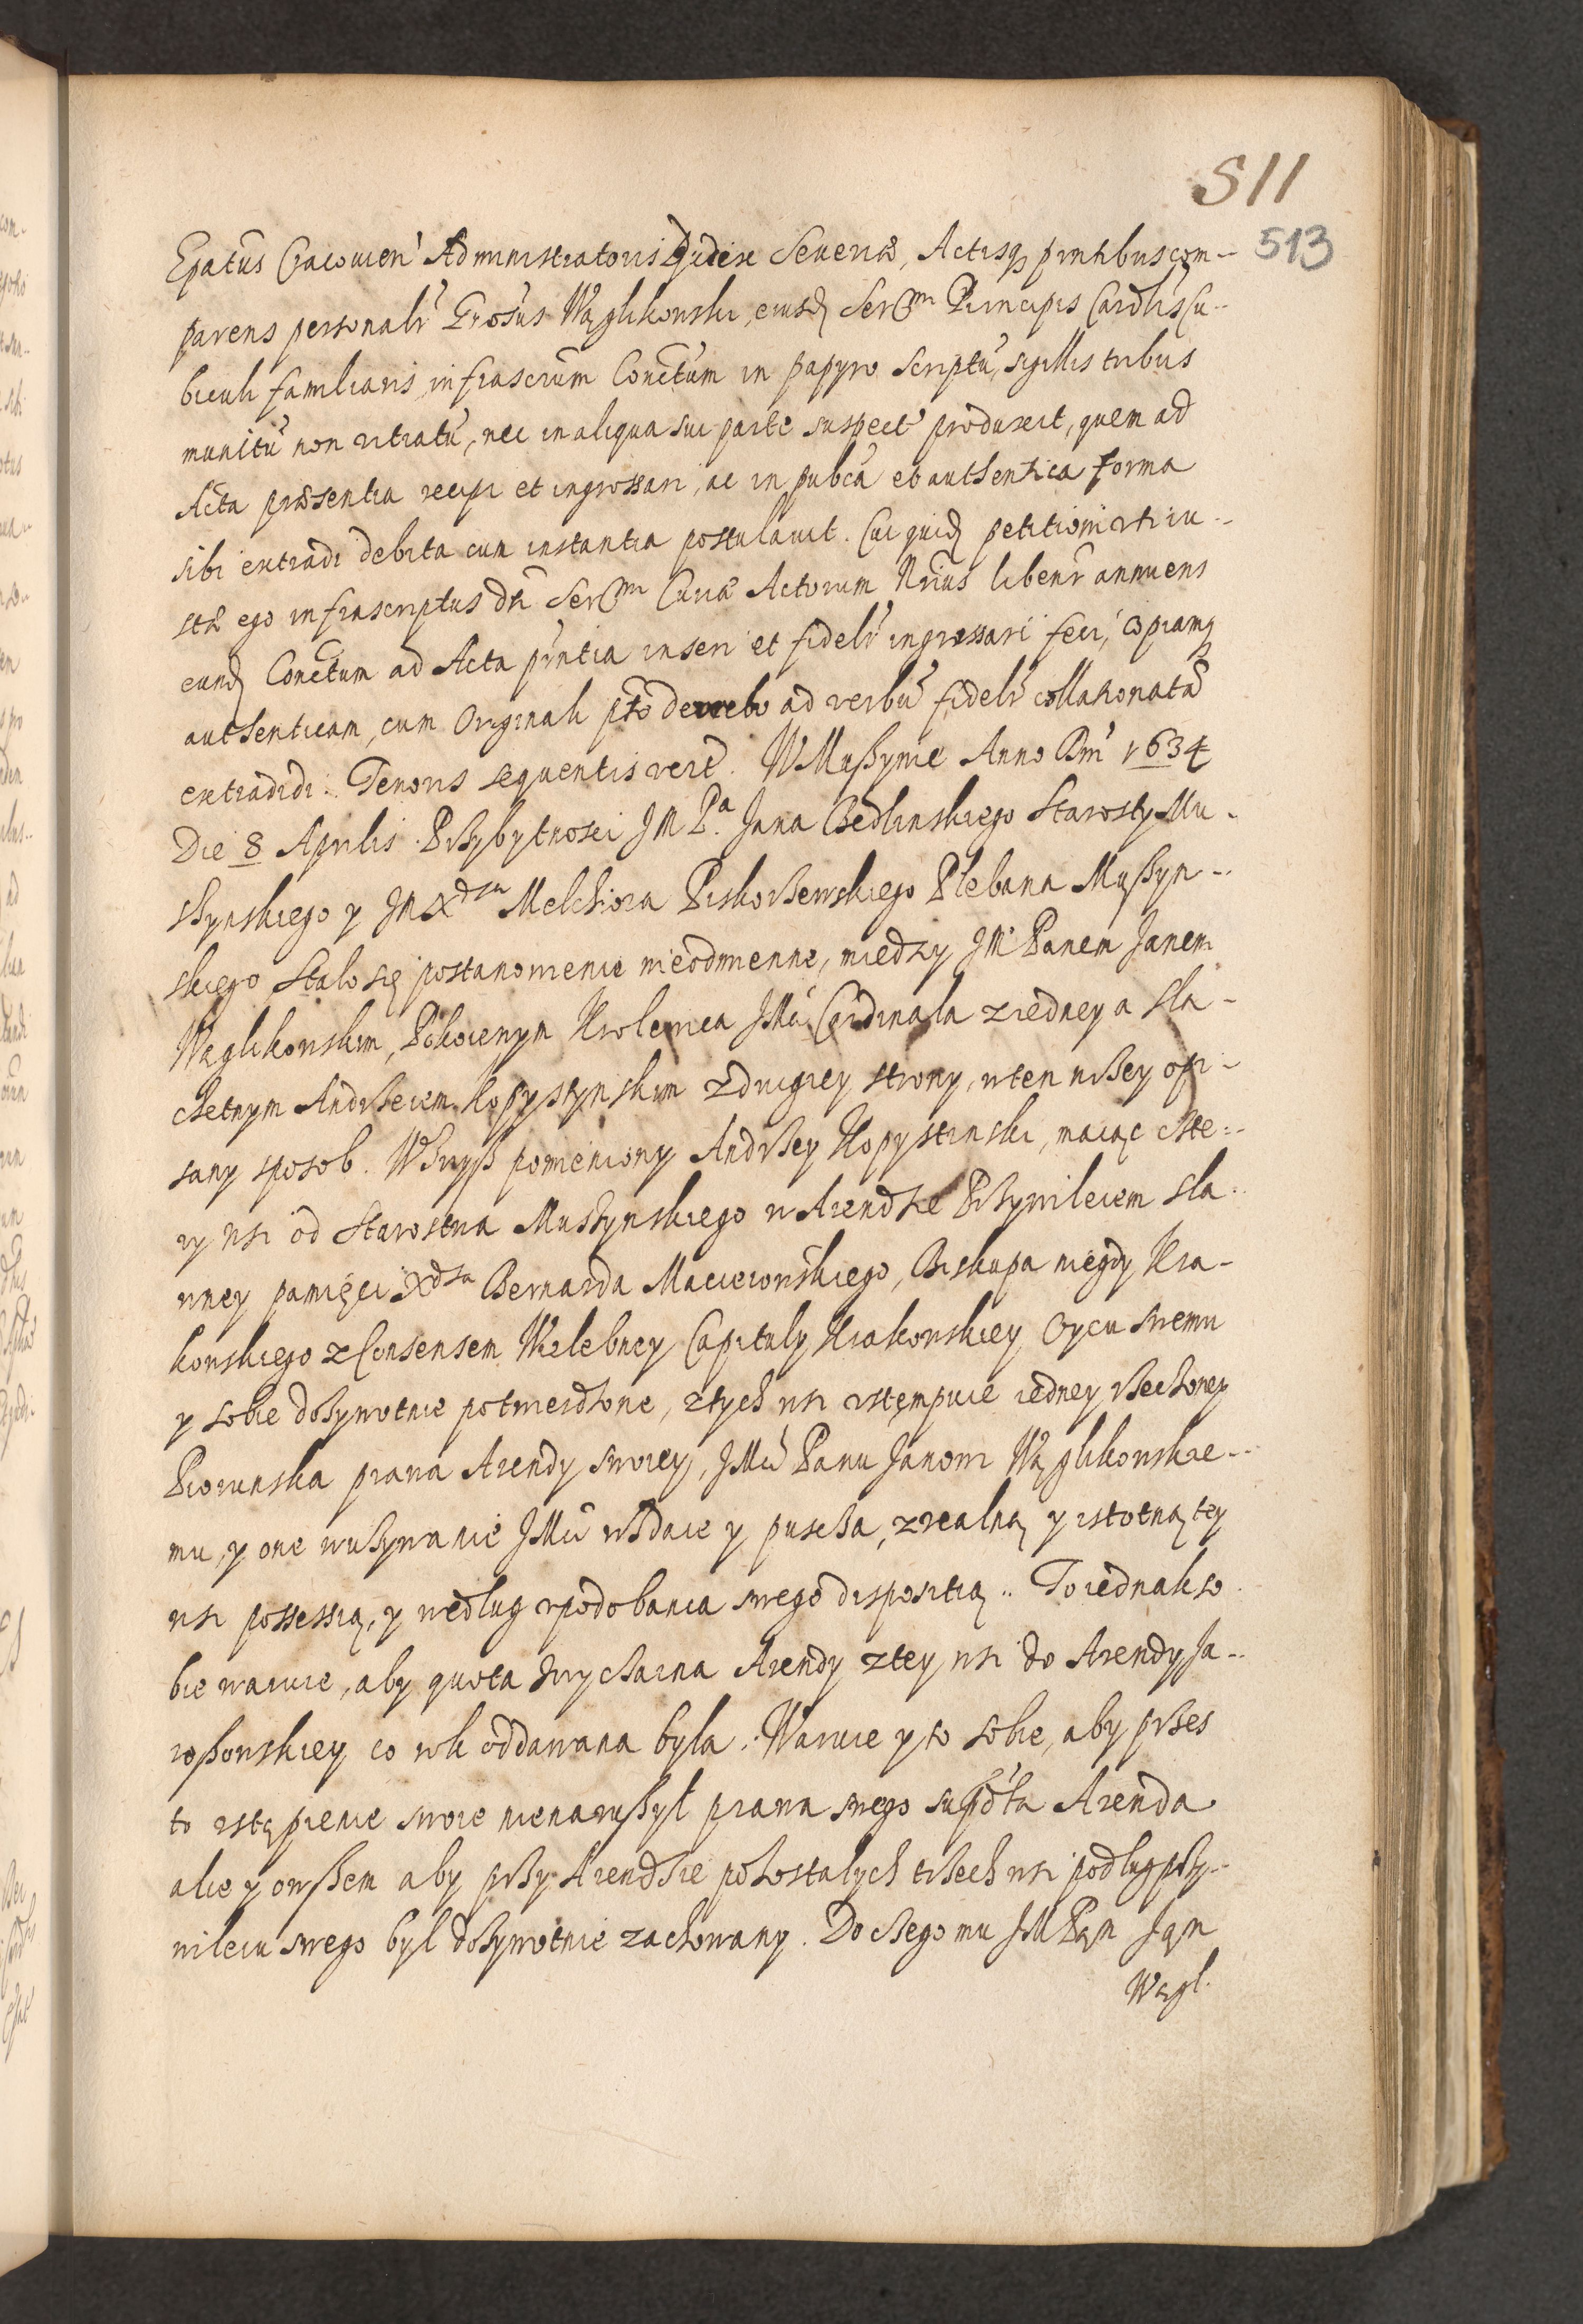 511
513
Epatus Cracovien̄ Administratoris Ducisx̄ Severiæ, Actisq̨ pntibus com-
parens personalr̄ Grosus Wąglikowski, eiusd̨ Serᵐⁱ Principis Cardlis Cu-
biculi familiaris, infrascrium Conctum in papyro scriptū, sigillis tribus
munitū non vitiatū, nec in aliqua sui parte suspect̄ produxit, quem ad
Acta præsentia recipi et ingrossari, ac in pubca et authentica forma
sibi extradi debita cum instantia postulavit. Cui quid̨ petitioni vti iu-
stæ ego infrascriptus dti Serᵐⁱ Curiæ Actorum Nrius libenr̄ annuens
eund̨ Conctum ad Acta pntia inseri et fidelr̄ ingrossari feci, copiamq̨
authenticam, cum Originali pto de verbo ad verbū fidelr̄ collationatā
extradidi. Tenoris sequentis vere. W Muszynie Anno Dm̄ 1634
Die 8 Aprilis Przy bytnosci JM Pᵃ. Jana Bedlinskiego Starosty Mu-
szynskiego y JM Xᵈᶻᵃ Melchiora Piskorzewskiego Plebana Muszyn-
skiego, Stało się postanowienie nieodmienne, miedzy JM Panem Janem
Wąglikowskim, Pokoiowym Krolewica JMći Cardinała z iedney a Sla-
chetnym Andrzeiem Kopystynskim z drugiey strony, w ten niżey opi-
sany sposob. Wzwyż pomieniony Andrzey Kopystinski, maiąc czte-
ry wsi od Starostwa Muszynskiego w Arendzie Przywileiem sla-
wney pamięci Xᵈᶻᵃ Bernarda Macieiowskiego, Biskupa niegdy Kra-
kowskiego z Consensem Wielebney Capituły Krakowskiey Oycu swemu
y sobie dożywotnie potwierdzone, z tych wsi vstępuie iedney rzeczoney
Piorunska prawa Arendy swoiey, JMći Panu Janowi Wąglikowskie-
mu, y one w używanie JMći wzdaie y puscza, z realną y istotną tey
wsi possessią, y według vpodobania swego dispositią. To iednak so
bie waruie, aby quota zwyczaina Arendy z tey wsi do Arendy Ja-
roszowskiey co rok oddawana była. Waruie y to sobie, aby przes
to vstąpienie swoie nie naruszył prawa swego supdta Arenda
ale y owszem aby przy Arendzie pozostałych trzech wsi podług przy-
wileiu swego był dożywotnie zachowany. Do czego mu JM Pan Jan
Wągl.